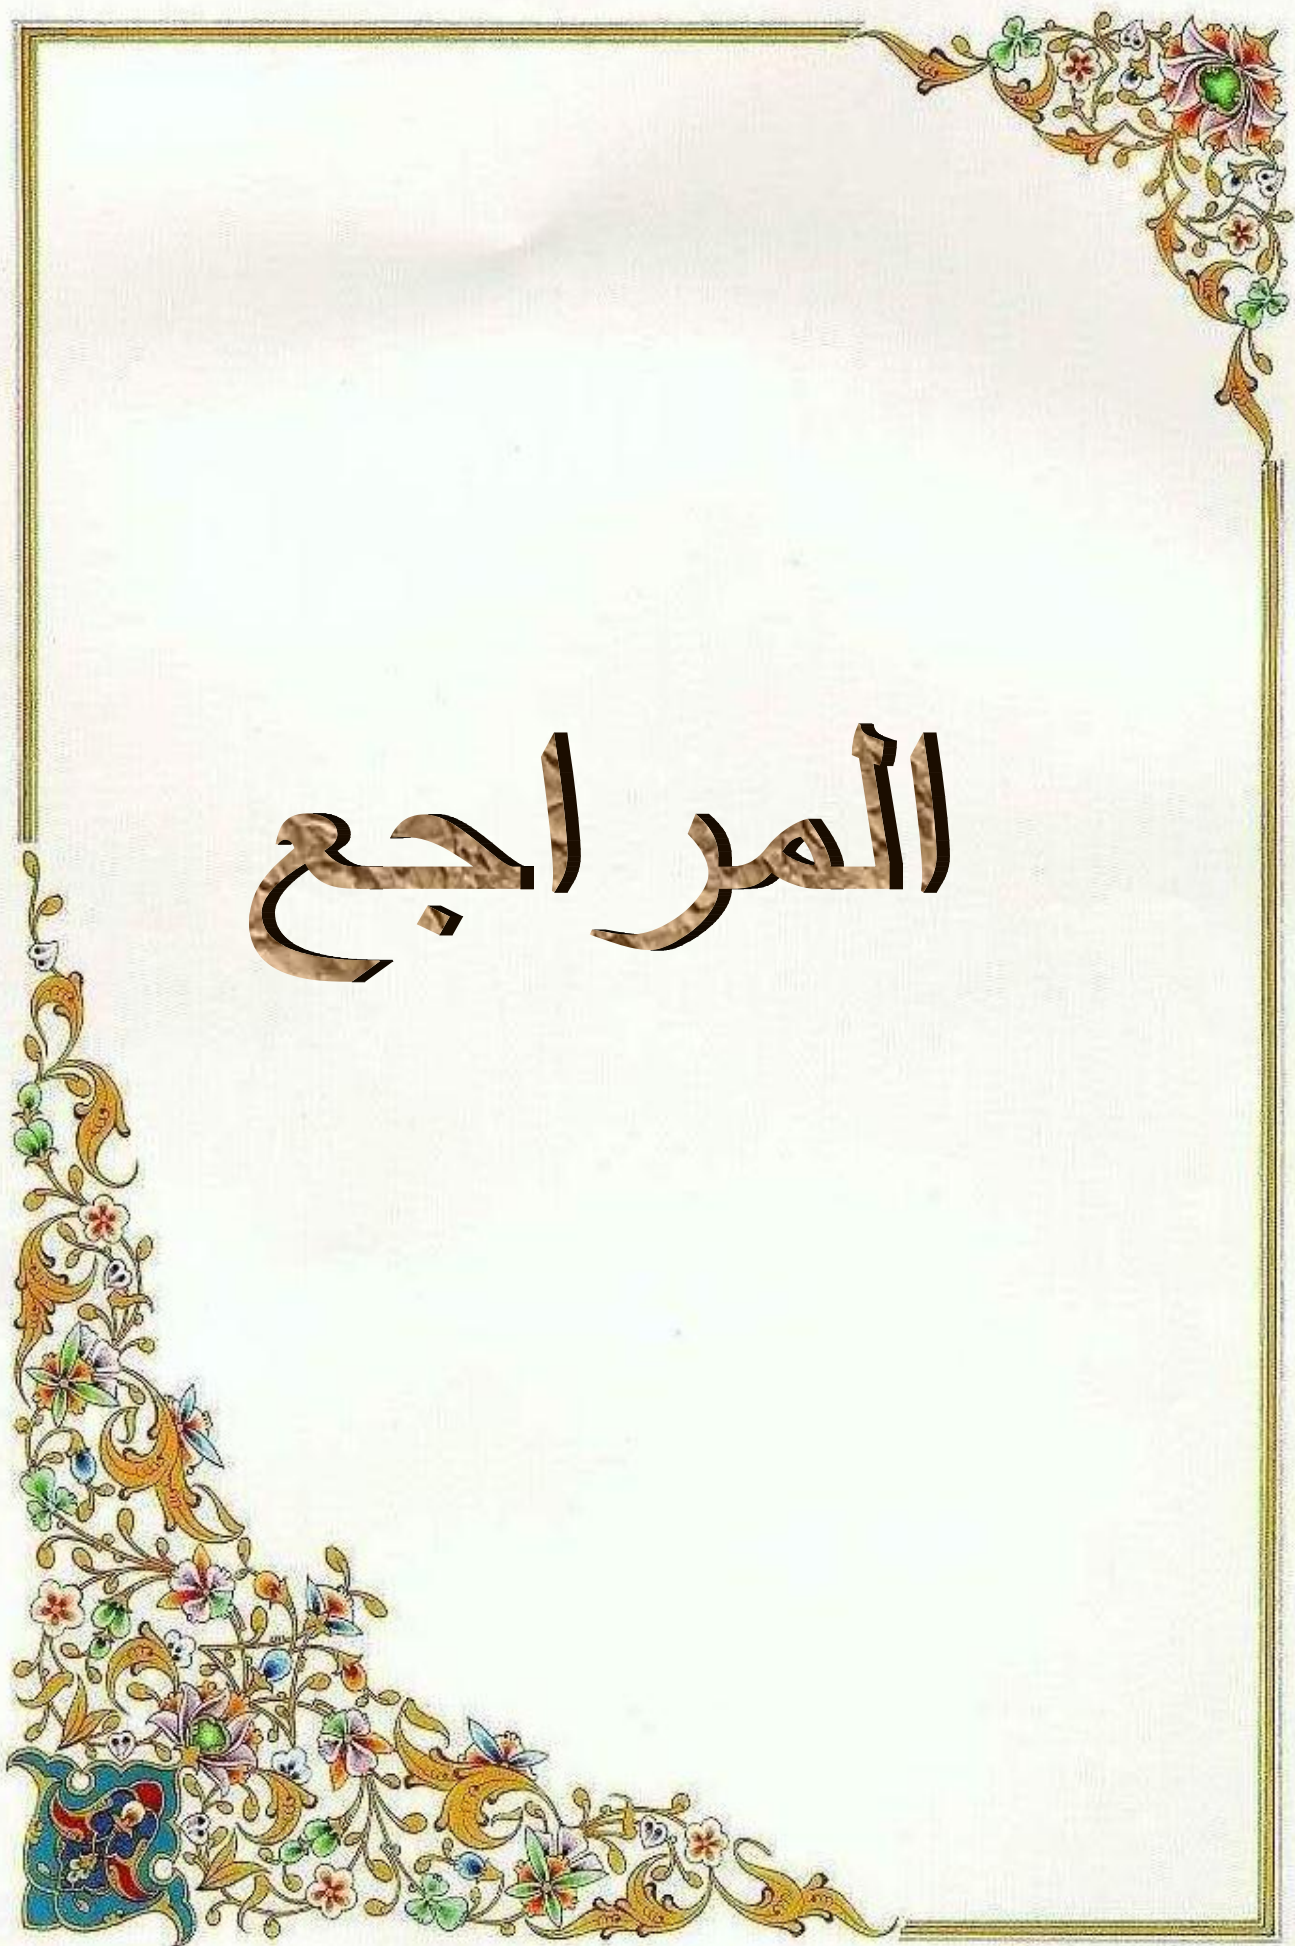 المراجع